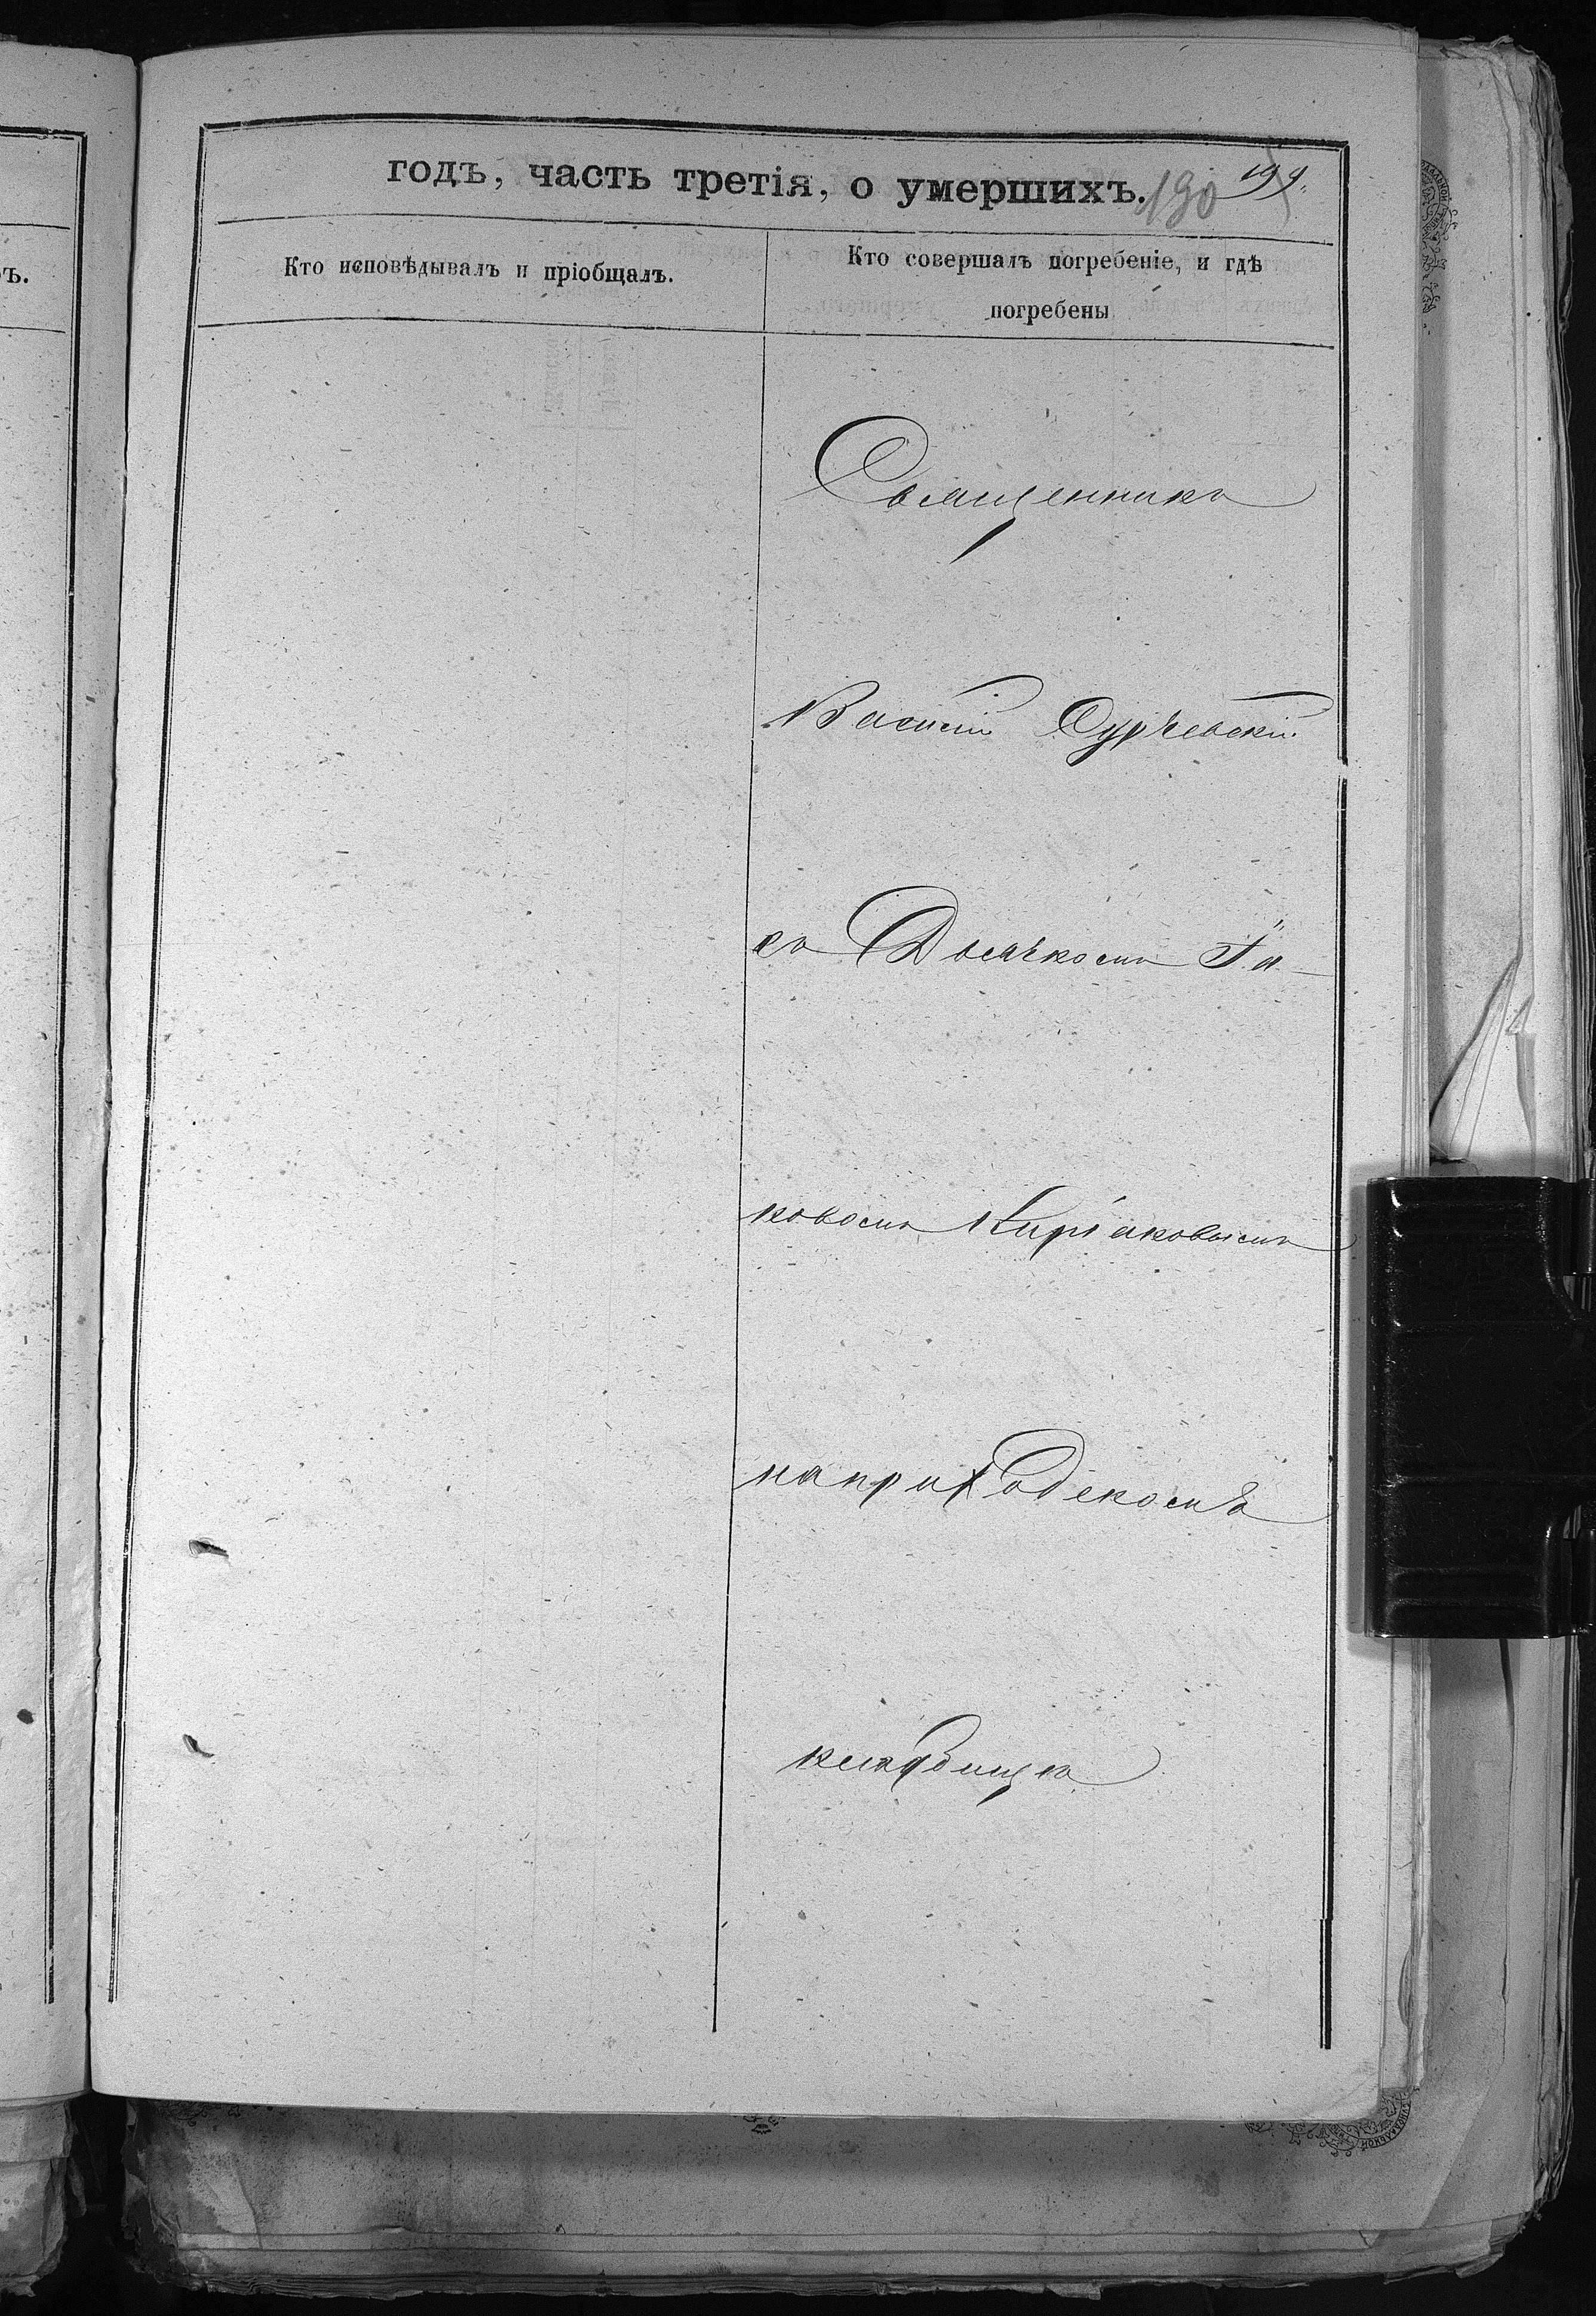 годъ, часть третія, о умершихъ. 190 199.
Кто исповѣдывалъ и пріобщалъ.
Кто совершалъ погребеніе, и гдѣ
погребены
ъ.
Священникъ
Василій Сурчевскій
съ Дьячкомъ Іа-
ковомъ Киріаковымъ
на приходскомъ
кладбищѣ